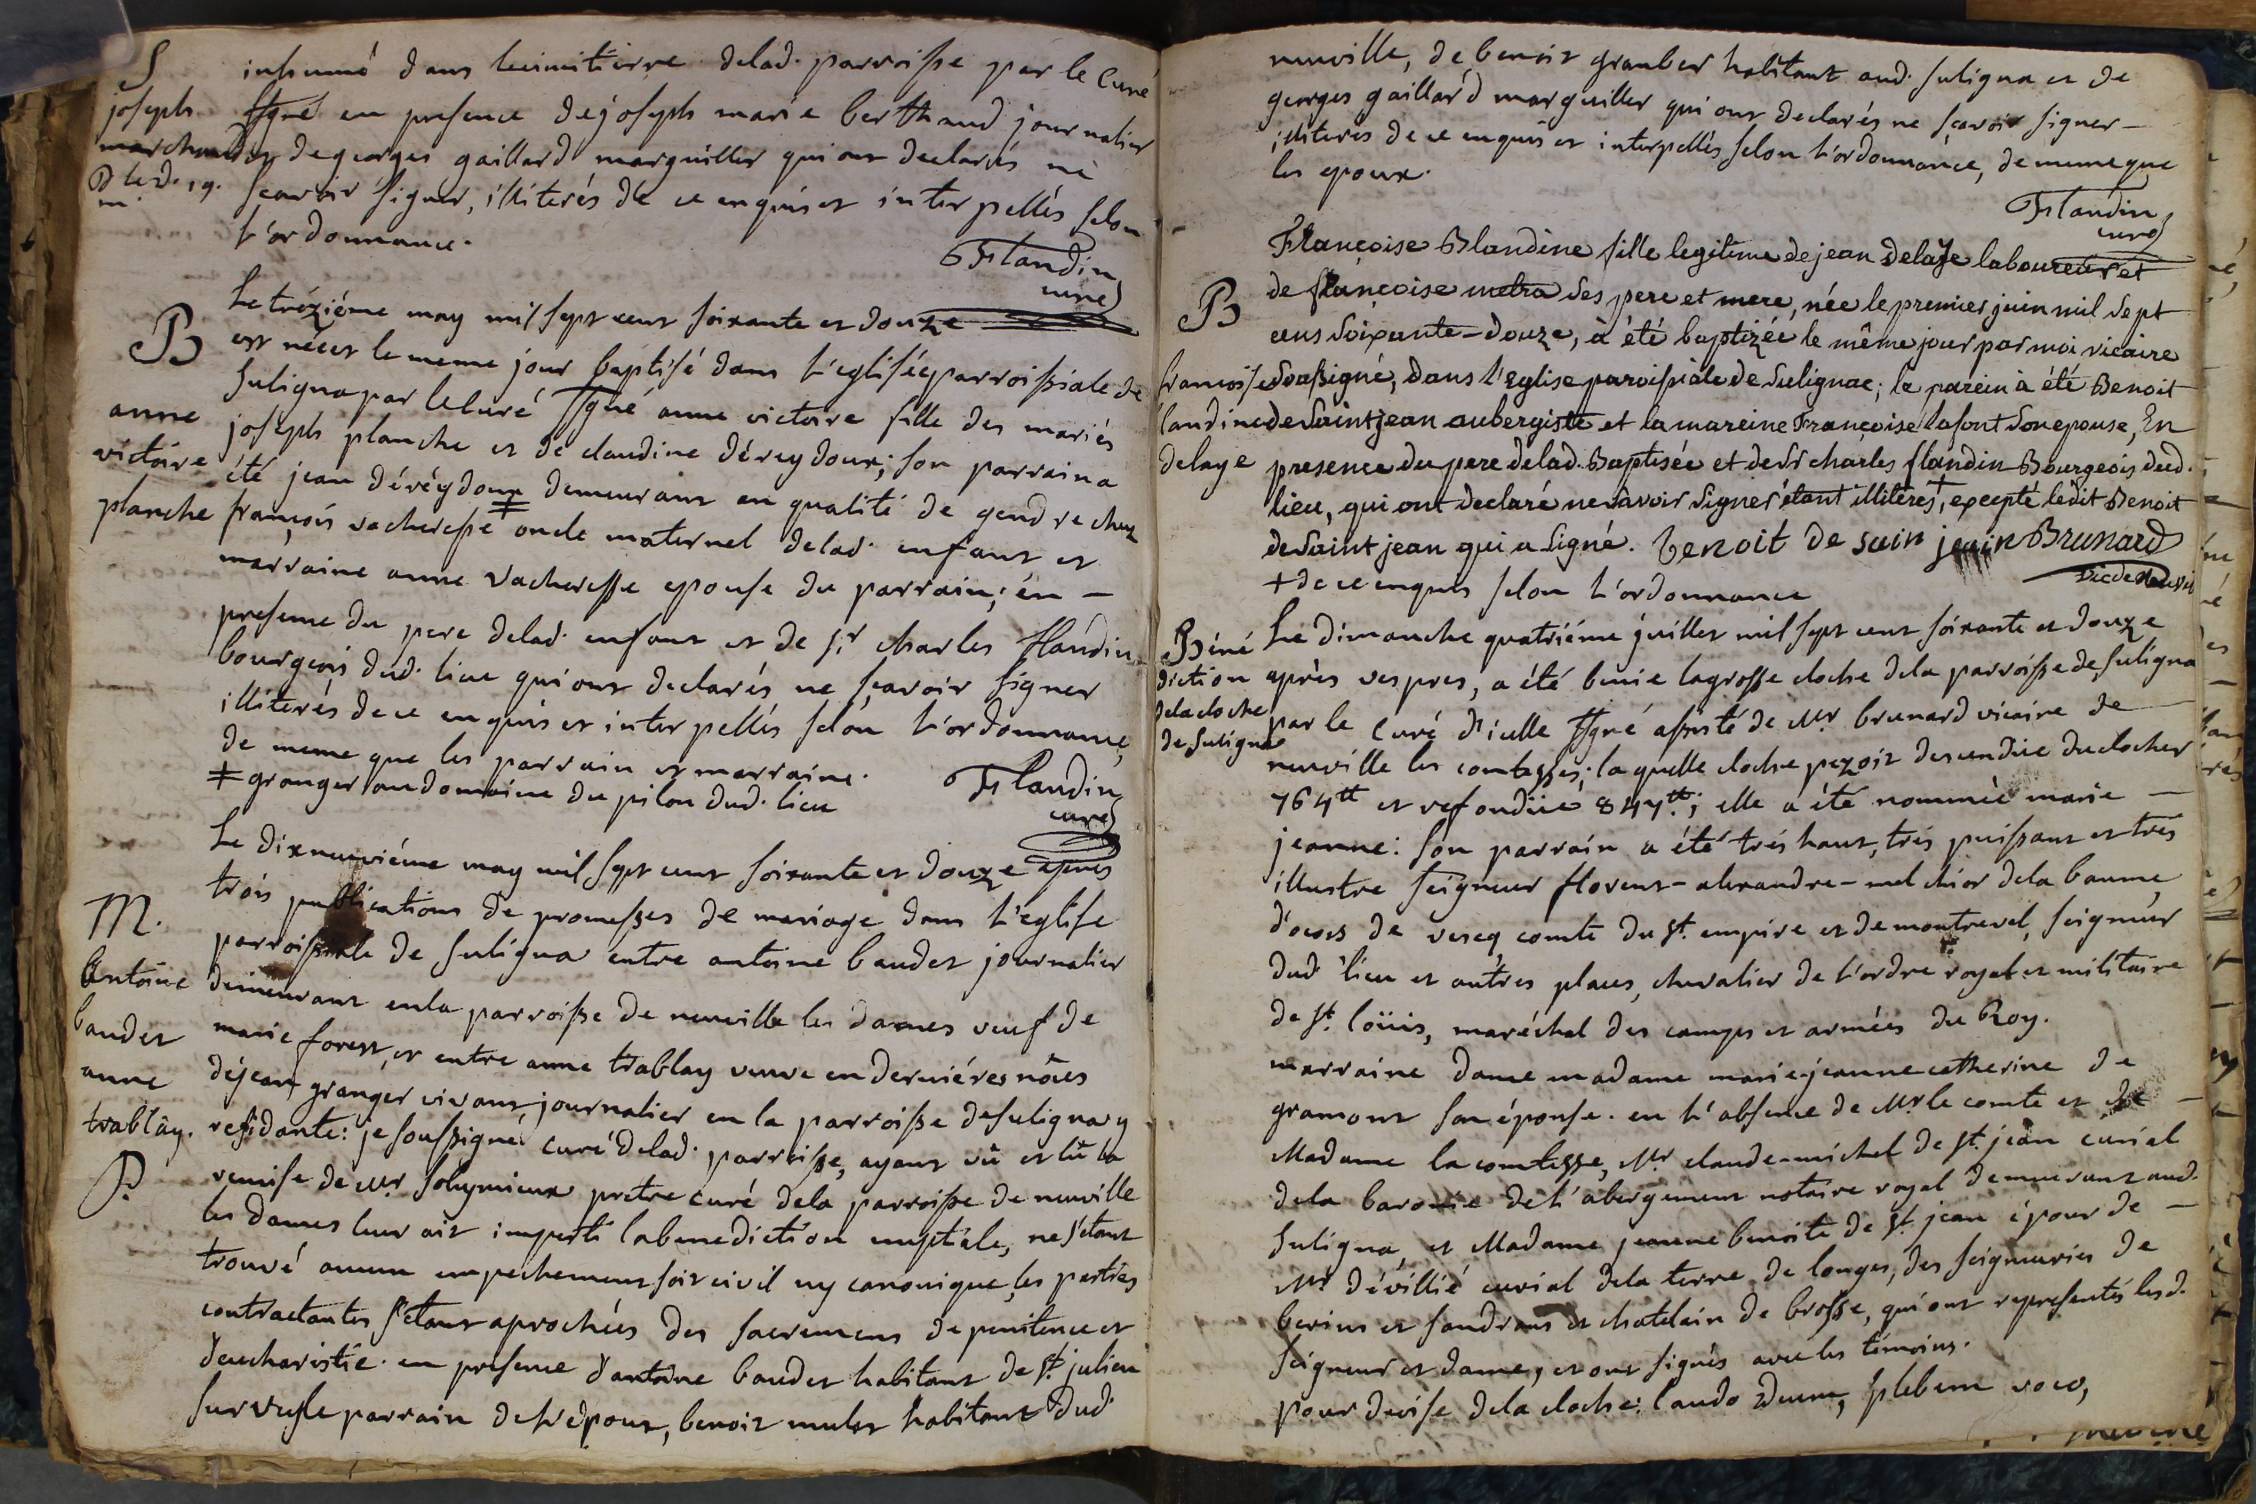 S
joseph
marchand
inhumé dans lecimitierre delad. parroisse par le Curé
ssgné en presence dejoseph marie berthaud journalier
et degeorges gaillard marguiller qui ont declarés ne
scavoir signer, illiterés de ce enquis et interpellés selon
l'ordonnance.
Flandin
curé
B
anne
victoire
planche
Le trézième may mil sept cent soixante et douze
est née et le meme jour baptisé dans l'eglisée parroissiale de
suligna par lecuré ssgné anne victoire fille des mariés
joseph planche et de claudine déreydoux; son parrain a
été jean déréydoux ‡ demeurant en qualité de gendre chez
françois vacheresse oncle maternel delad. enfant et
marraine anne vacheresse epouse du parrain; én –
presence du pere delad. enfant et de sr charles flandin
bourgeois dud. lieu qui ont declarés ne sçavoir signer
illiterés de ce enquis et interpellés selon l'ordonnance,
de meme que les parrain et marraine.
‡ granger au domaine du pilon dud. lieu
Flandin
curé
M.
Antoine
baudet
anne
trablay.
P
Le dixneuviéme may mil sept cent soixante et douze apres
trois publications de promesses de mariage dans l'eglise
parroissiale de suligna entre antoine baudet journalier
demeurant enla parroisse de neuville les dames veuf de
marie forest, et entre anne trablay veuve en derniéres nôces
dejean granger vivant journalier en la parroisse desuligna y
residante: je soussigné curé delad. parroisse, ayant vû et lû la
remise de Mr. solyymieux pretre curé dela parroisse de neuville
les dames leur ait imparti labenediction nuptiale, ne s'étant
trouvé aucun empechement soit civil ny canonique, les parties
contractantes s'étant aprochées des sacremens de penitence et
d'eucharistie. en presence d'antoine baudet habitant de st. julien
sur vesle parrain de l'épour, benoit mulet habitant dud.
neuville, de benoit grauber habitant aud. suligna et de
georges gaillard marguiller qui ont declarés ne sçavoir signer –
illiterés de ce enquis et interpellés selon l'ordonnance, de meme que
les epoux.
Flandin
curé
B
francoise
landine
delaye
Françoise Blandine fille legitime de jean delaye laboureur et
de françoise metra ses pere et mere, née le premier juin mil sept
cens soixante-douze, à été baptizée le même jour par moi vicaire
soussigné, dans l'Eglise paroissiale de Sulignac; le parein à été Benoit
de Saint jean aubergiste et la mareine Françoise lafont son epouse, En
presence du pere delad. Baptisée et de sr charles flandin Bourgeois dud.
lieu, qui ont declaré ne savoir signer étant illiteres +, excepté ledit Benoit
de Saint jean qui a signé. benoit de sain jean Brunard
vic de neuvil
+ de ce enquis selon l'ordonnance
Béné
diction
dela cloche
de suligna
Le dimanche quatriéme juillet mil sept cent soixante et douze
après vespres, a été benie lagrosse cloche dela parroisse de suligna
par le Curé d'icelle ssgné assisté de Mr. brunard vicaire de –
neuville les comtesses; la quelle cloche pezoit descendüe duclocher
764tt et refondüe 847tt; elle a été nommée marie –
jeanne: son parrain a été trés haut, trés puissant et trés
illustre seigneur florent-alexandre-melchior dela baume
d'occors de vercq comte du st. empire et de montrevel, seigneur
dud. lieu et autres places, chevalier de l'ordre royal et militaire
de st. loüis, maréchal des camps et armées du Roy.
marraine dame madame marie-jeanne catherine de
gramont son épouse. en l'absence de Mr le comte et de –
Madame la comtesse, Mr. claude-michel de st. jean curial
dela baronie de l'abergement notaire royal demeurant aud.
suligna, et Madame jeanne benoite de st. jean épour de –
Mr dévillié curial dela terre de longes, des seigneuries de
berins et sandrans et chatelain de brosse, qui ont representés lesd.
seigneur et dame, et ont signés avec les témoins.
pour devise dela cloche: laudo deum, plebem voco,